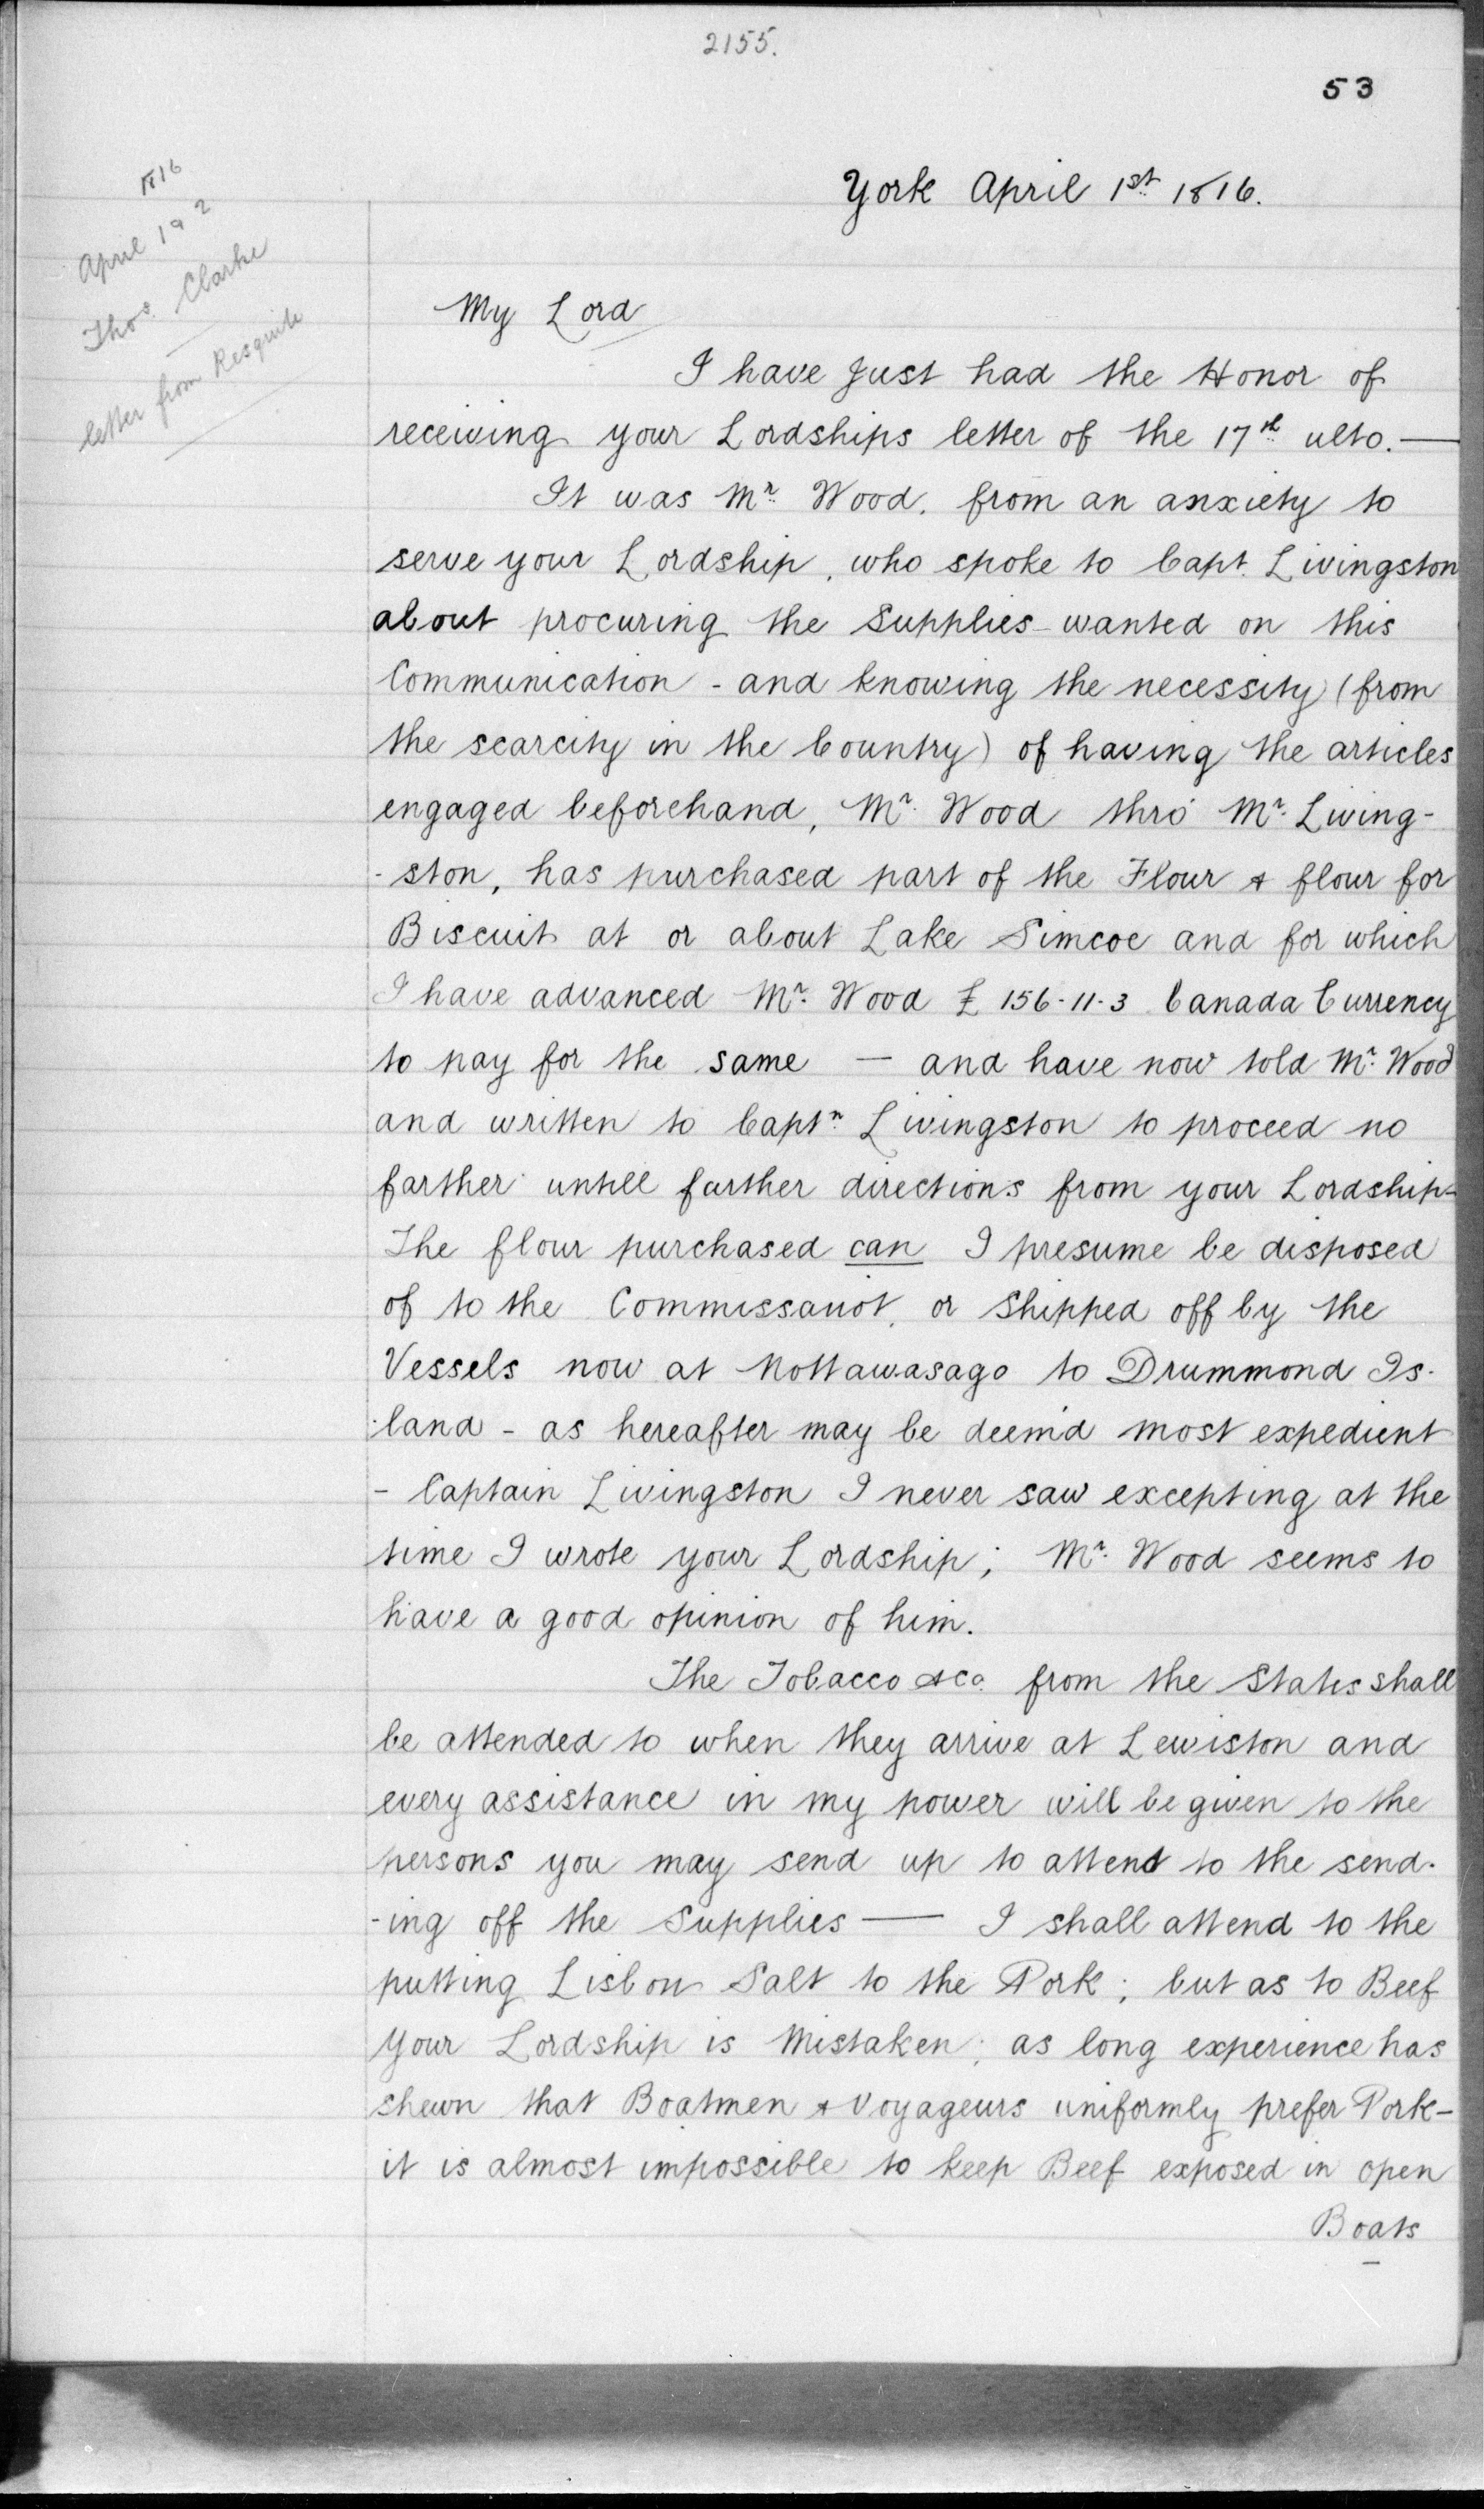 2155.
53
1816
April 1 & 2
Thos. Clarke
letter from
York April 1st 1816.
My Lord
I have just had the Honor of
receiving your Lordships letter of the 17th ulto. —
It was Mr. Wood, from an anxiety to
serve your Lordship, who spoke to Capt. Livingston
about procuring the Supplies wanted on this
Communication - and knowing the necessity (from
the scarcity in the Country) of having the articles
engaged beforehand, Mr. Wood thro' Mr. Living-
-ston, has purchased part of the Flour & flour for
Biscuit at or about Lake Simcoe and for which
I have advanced Mr. Wood £ 156-11-3 Canada Currency
to pay for the same — and have now told Mr. Wood
and written to Captn. Livingston to proceed no
farther untill further directions from your Lordship-
The flour purchased can I presume be disposed
of to the Commissariot, or Shipped off by the
Vessels now at Nottawasago to Drummond Is-
-land - as hereafter may be deem'd most expedient
- Captain Livingston I never saw excepting at the
time I wrote your Lordship; Mr. Wood seems to
have a good opinion of him.
The Tobacco &co. from the States shall
be attended to when they arrive at Lewiston and
every assistance in my power will be given to the
persons you may send up to attend to the send-
-ing off the Supplies — I shall attend to the
putting Lisbon Salt to the Pork; but as to Beef
your Lordship is Mistaken; as long experience has
shewn that Boatmen & Voyageurs uniformly prefer Pork-
it is almost impossible to keep Beef exposed in open
Boats